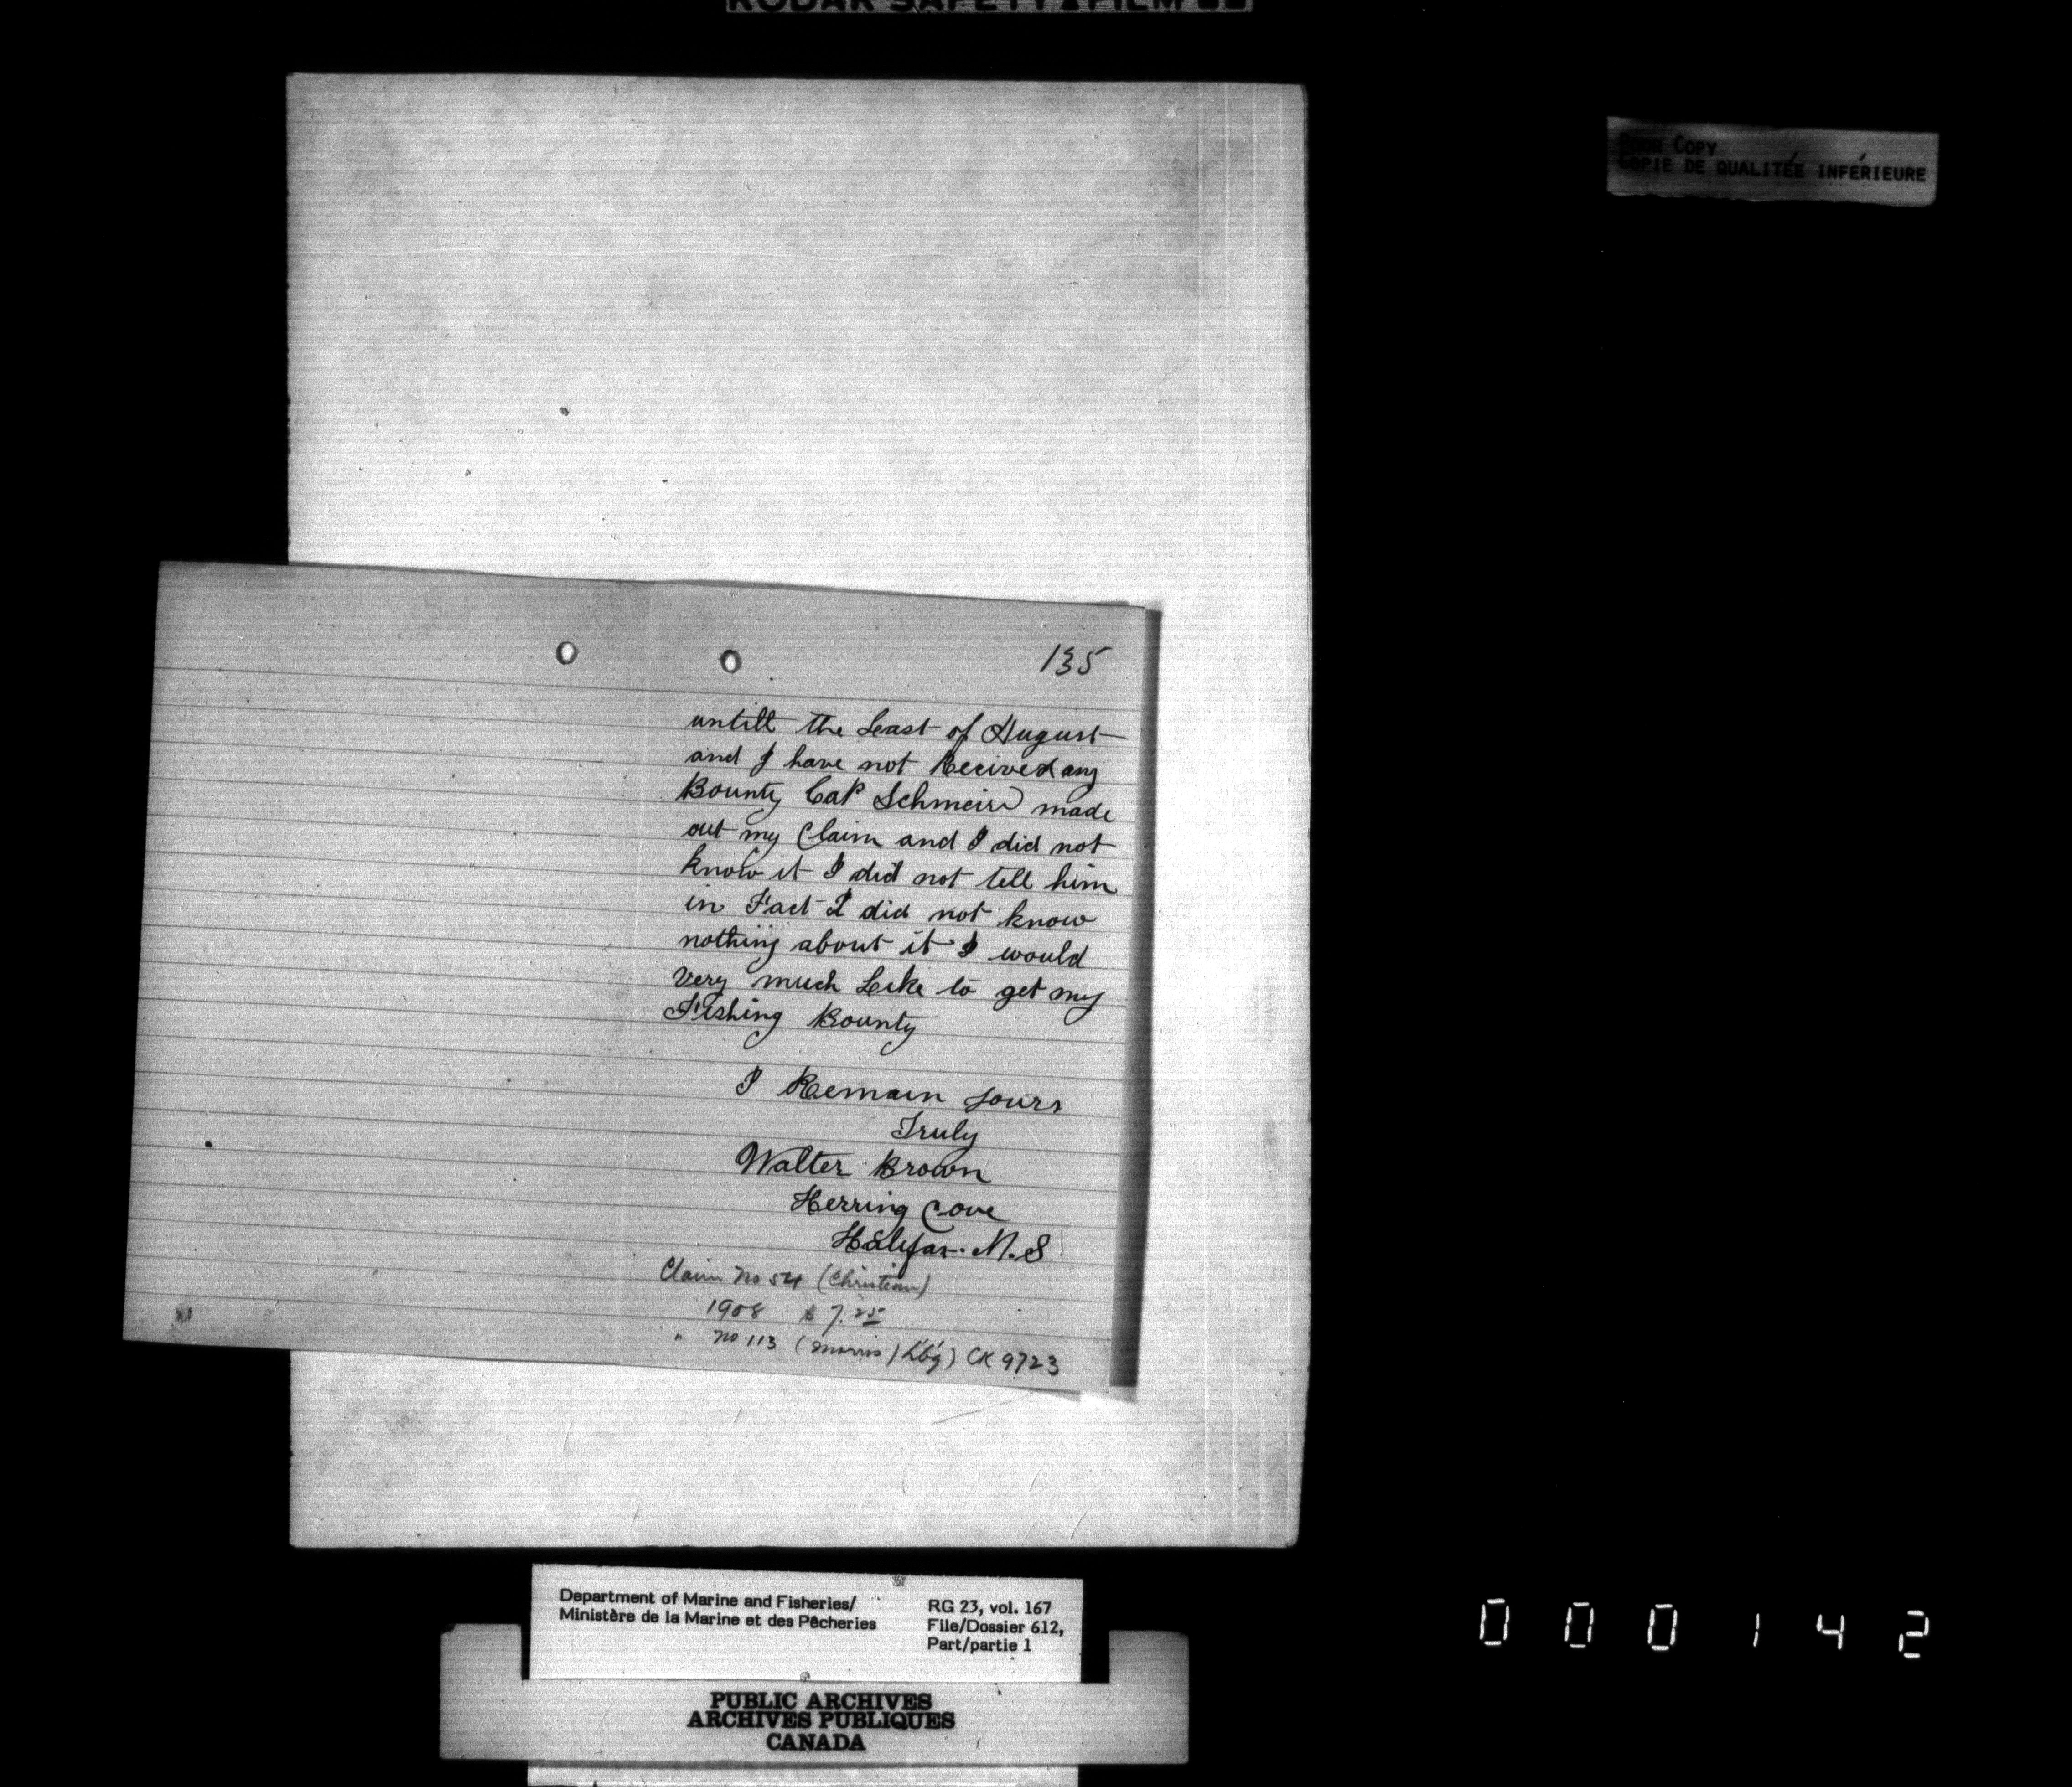 KODAK SAFETY FILM
POOR COPY
COPIE DE QUALITÉE INFÉRIEURE
135
untill the Least of August
and I have not Recived any
Bounty Cap Schmeisr made
out my Claim and I did not
know it I did not tell him
in Fact I did not know
nothing about it I would
very much Like to get my
Fishing Bounty
I Remain yours
Truly
Walter Brown
Herring Cove
Halifax. N.S
Claim No 54 (Christian)
1908 $ 7.25
" No 113 (Morris, Lbg) CK 9723
Department of Marine and Fisheries/
Ministère de la Marine et des Pêcheries
RG 23, vol. 167
File/Dossier 612,
Part/partie 1
PUBLIC ARCHIVES
ARCHIVES PUBLIQUES
CANADA
000142